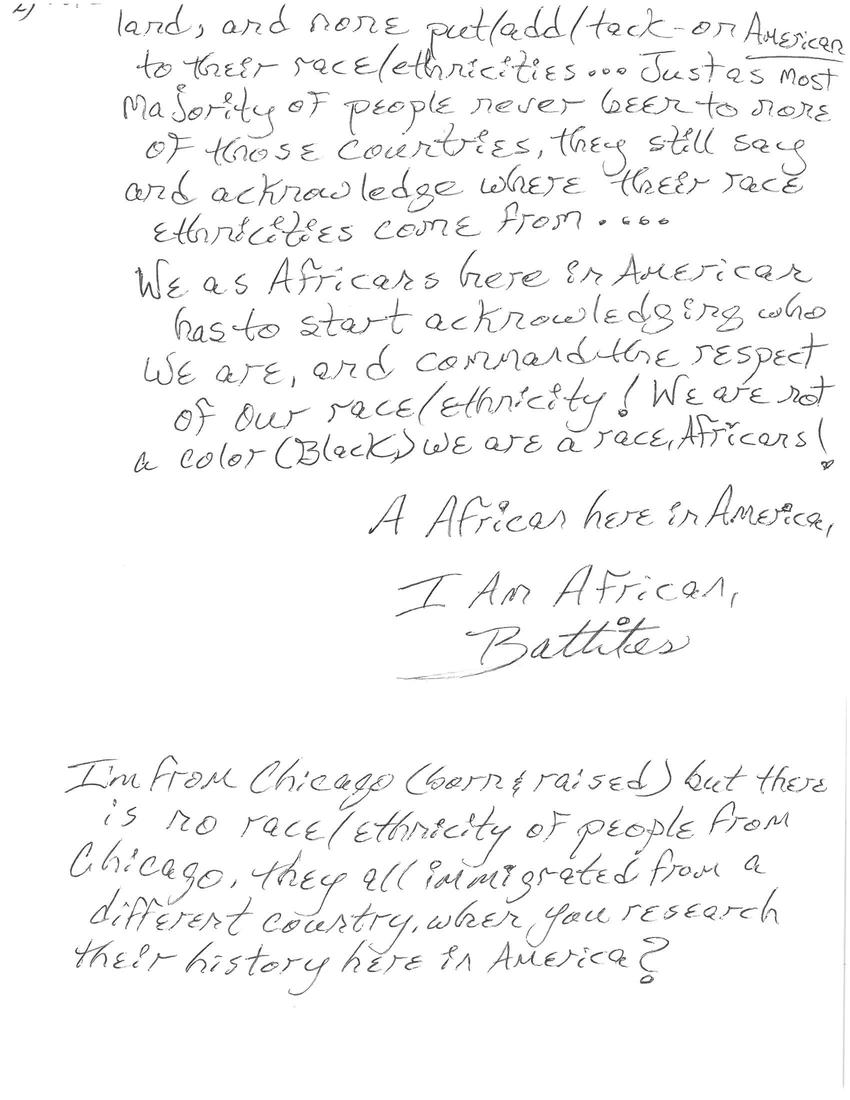 land, and none put/add/tack-on American
to their race/ethnicities... Just as most
majority of people never been to none
of those countries, they still say
and acknowledge where their race
ethnicities come from....
We as Africans here in American
has to start acknowledging who
we are, and command the respect
of our race/ethnicity! We are not
a color (Black) we are a race, Africans!
A African here in America,
I Am African,
Battites
I'm from Chicago (born & raised) but there
is no race/ethnicity of people from
Chicago, they all immigrated from a
different country, when you research
their history here in America?